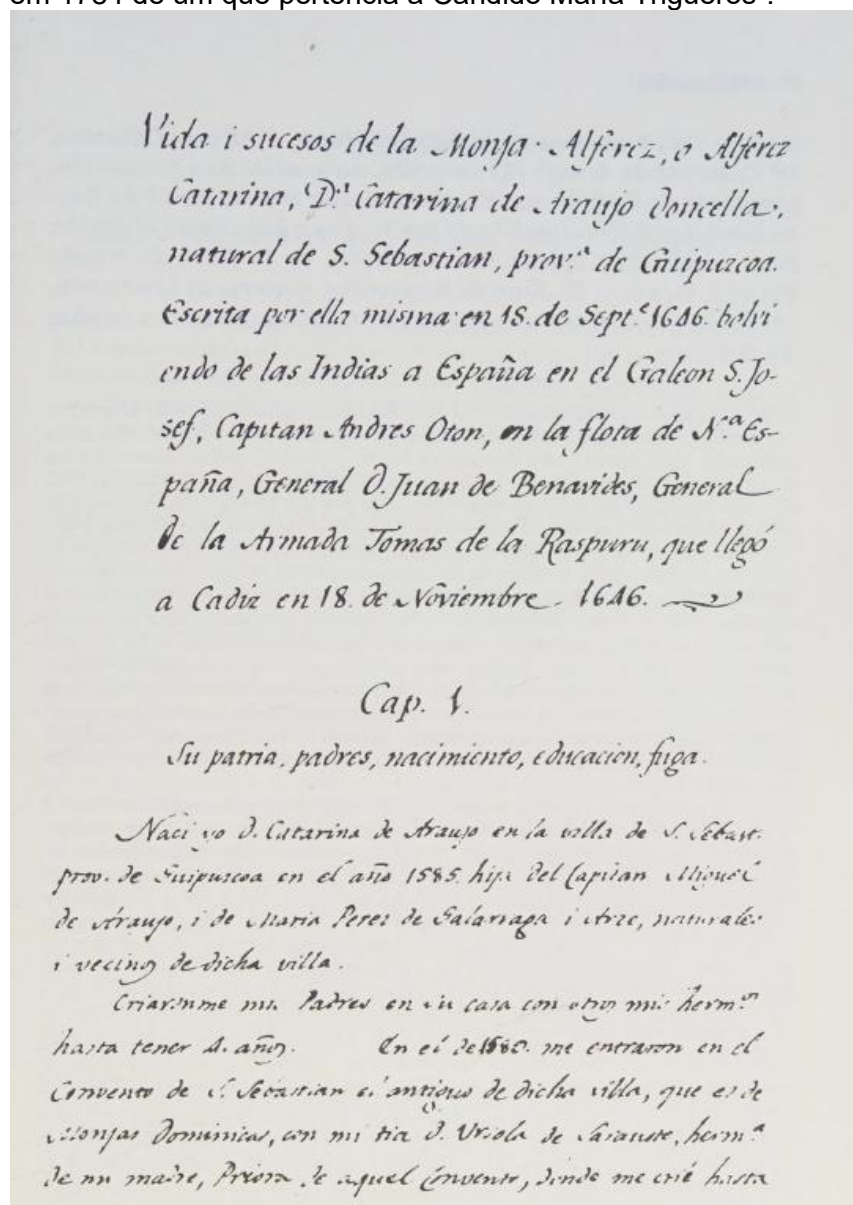 em 1784 de um que pertencia a Cándido María Trigueros".
Vida i sucesos de la Monja Alferez, o Alferez
Catarina, D.ª Catarina de Araujo doncella,
natural de S. Sebastian, prov.ª de Guipuzcoa.
Escrita por ella misma en 18. de Sept.e 1646. bolvi
endo de las Indias a España en el Galeon S. Jo-
sef, Capitan Andres Oton, en la flota de N.ª Es-
paña, General D. Juan de Benavides, General
de la Armada Tomas de la Raspuru, que llegó
a Cadiz en 18. de Noviembre. 1646.
Cap. 1.
Su patria, padres, nacimiento, educacion, fuga.
Naci yo D. Catarina de Araujo en la villa de S. Sebast.
prov. de Guipuzcoa en el año 1585. hija del Capitan Miguel
de Araujo, i de Maria Perez de Galarraga i Arze, naturales
i vecinos de dicha villa.
Criaronme mis Padres en su casa con otros mis herm.os
hasta tener 4. años. En el de me entraron en el
Convento de S. Sebastian el antiguo de dicha villa, que es de
Monjas Dominicas, con mi tia D. Ursola de herm.ª
de mi madre, Priora de aquel Convento, donde me crié hasta